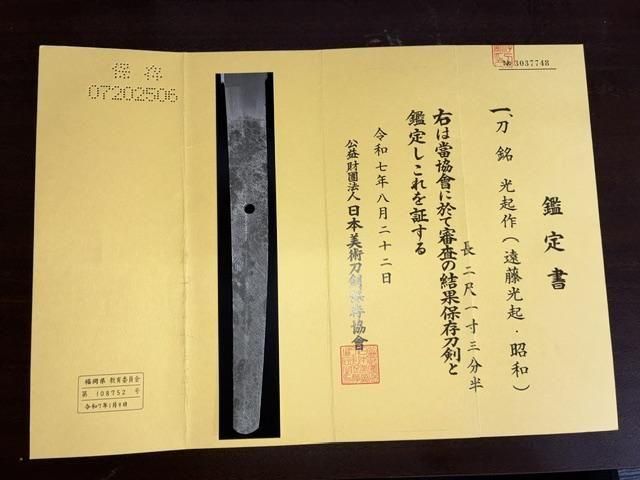 № 3037748
鑑定書
一、刀 銘 光起作(遠藤光起・昭和)
長二尺一寸三分半
右は當協會に於て審査の結果保存刀剣と
鑑定しこれを証する
令和七年八月二十二日
公益財團法人日本美術刀剣保存協會
保存
07202506
福岡県 教育委員会
第 108752 号
令和7年1月9日